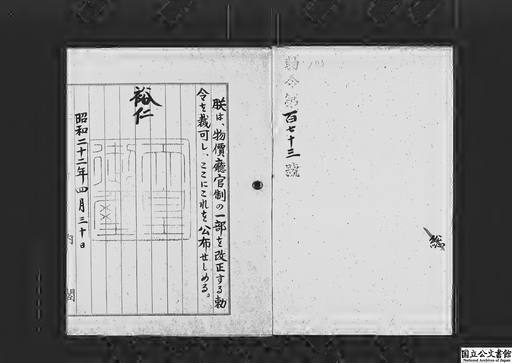 勅令第百七十三號
総
朕は、物價廳官制の一部を改正する勅
令を裁可し、ここにこれを公布せしめる。
裕仁
昭和二十二年四月三十日
内閣
国立公文書館
National Archives of Japan